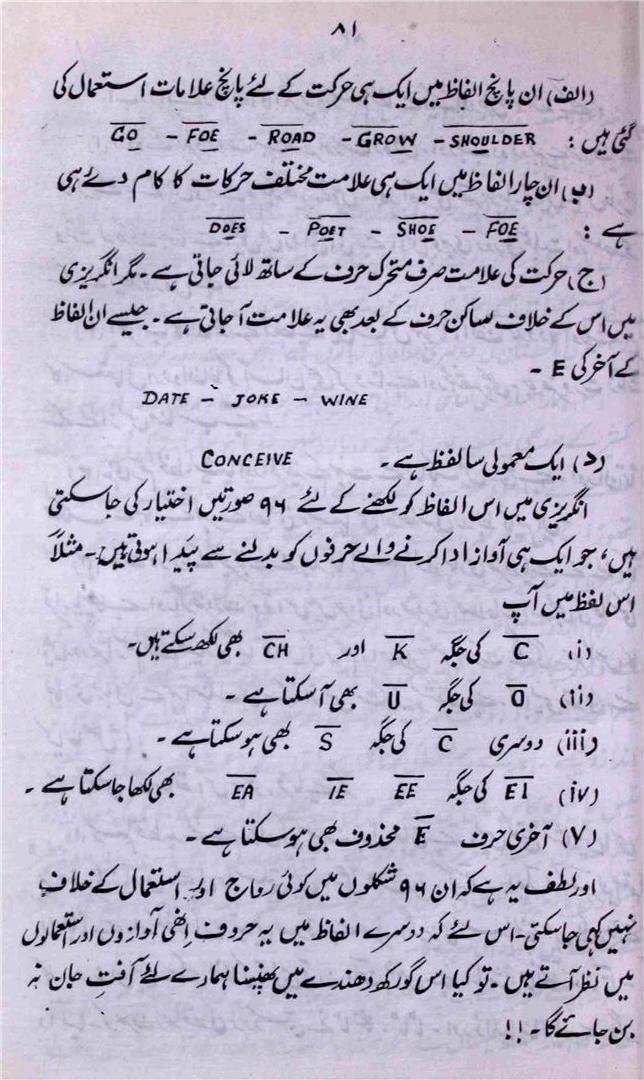 ۸۱
(الف) ان پانچ الفاظ میں ایک ہی حرکت کے لئے پانچ علامات استعمال کی
گئی ہیں : GO - FOE - ROAD - GROW - SHOULDER
(ب) ان چار الفاظ میں ایک ہی علامت مختلف حرکات کا کام دے رہی
ہے : DOES - POET - SHOE - FOE
(ج) حرکت کی علامت صرف متحرک حرف کے ساتھ لائی جاتی ہے ۔ مگر انگریزی
میں اس کے خلاف ساکن حرف کے بعد بھی یہ علامت آ جاتی ہے ۔ جیسے ان الفاظ
کے آخر کی E ۔
DATE - JOKE - WINE
(د) ایک معمولی سا لفظ ہے ۔ CONCEIVE
انگریزی میں اس الفاظ کو لکھنے کے لئے ۹۶ صورتیں اختیار کی جا سکتی
ہیں ، جو ایک ہی آواز ادا کرنے والے حرفوں کو بدلنے سے پیدا ہوتی ہیں ۔ مثلاً
اس لفظ میں آپ
(i) C کی جگہ K اور CH بھی لکھ سکتے ہیں ۔
(ii) O کی جگہ U بھی آ سکتا ہے ۔
(iii) دوسری C کی جگہ S بھی ہو سکتا ہے ۔
(iv) EI کی جگہ EE IE EA بھی لکھا جا سکتا ہے ۔
(V) آخری حرف E محذوف بھی ہو سکتا ہے ۔
اور لطف یہ ہے کہ ان ۹۶ شکلوں میں کوئی رواج اور استعمال کے خلاف
نہیں کہی جا سکتی ۔ اس لئے کہ دوسرے الفاظ میں یہ حروف اِنھی آوازوں اور استعمالوں
میں نظر آتے ہیں ۔ تو کیا اس گورکھ دھندے میں پھنسنا ہمارے لئے آفتِ جان نہ
بن جائے گا ۔ !!